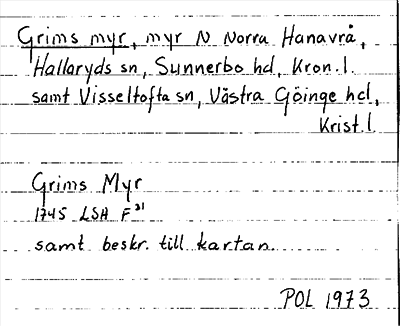 Grims myr, myr N Norra Hanavrå,
Hallaryds sn, Sunnerbo hd, Kron. l.
samt Visseltofta sn, Västra Göinge hd,
Krist. l.
Grims Myr
1745 LSA F31
samt beskr. till kartan.
POL 1973